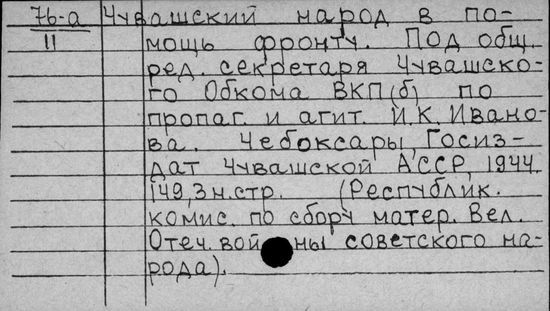 76-а Чувашский народ в по-
11 мощь фронту. Под общ.
ред. секретаря Чувашско-
го Обкома ВКП(б) по
пропаг. и агит. И.К. Ивано-
ва. Чебоксары, Госиз-
дат Чувашской АССР, 1944.
149, 3 н. стр. (Республик.
комис. по сбору матер. Вел.
Отеч. войны советского на-
рода).